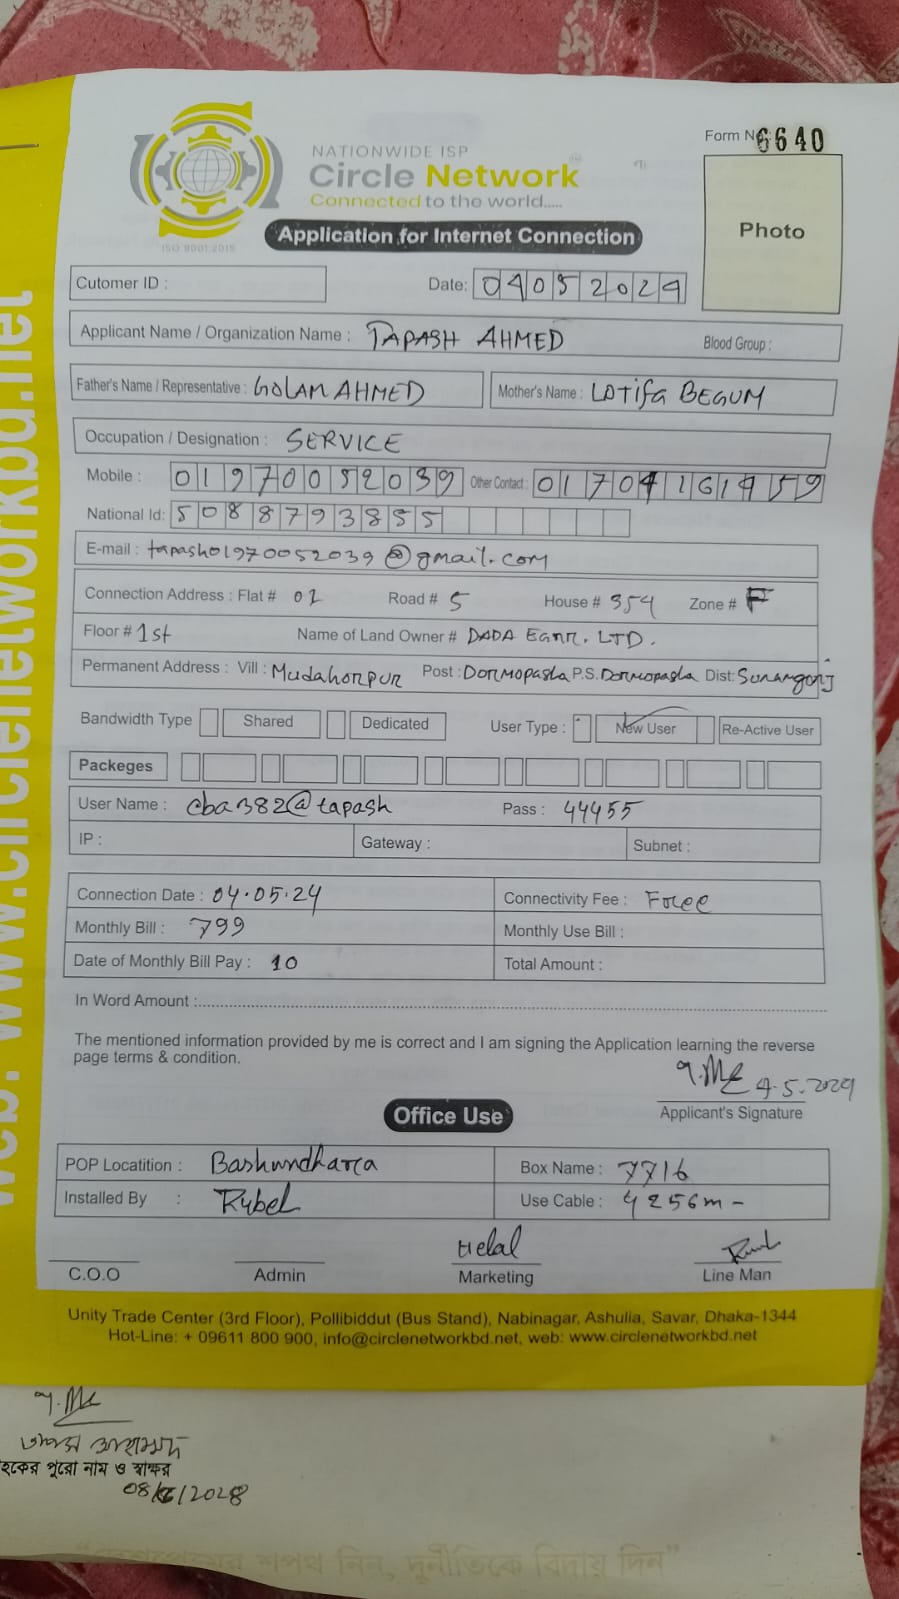 Form No. 6640
NATIONWIDE ISP
Circle Network
Connected to the world.....
ISO 9001:2015
Application for Internet Connection
Photo
Cutomer ID :
Date: 04052024
Applicant Name / Organization Name : TAPASH AHMED Blood Group :
Father's Name / Representative : GOLAM AHMED Mother's Name : LOTIFA BEGUM
Occupation / Designation : SERVICE
Mobile : 01970052039 Other Contact : 01704161459
National Id: 5088793855
E-mail : tapash01970052039@gmail.com
Connection Address : Flat # 02 Road # 5 House # 354 Zone # F
Floor # 1st Name of Land Owner # DADA LTD.
Permanent Address : Vill : Mudahorpur Post : Dormopasha P.S. Dormopasha Dist: Sunamgonj
Bandwidth Type Shared Dedicated User Type : New User Re-Active User
Packeges
User Name : cba382@tapash Pass : 44455
IP : Gateway : Subnet :
Connection Date : 04.05.24 Connectivity Fee : Free
Monthly Bill : 799 Monthly Use Bill :
Date of Monthly Bill Pay : 10 Total Amount :
In Word Amount :
The mentioned information provided by me is correct and I am signing the Application learning the reverse
page terms & condition.
4.5.2024
Applicant's Signature
Office Use
POP Locatition : Bashundhara Box Name : 7716
Installed By : Rubel Use Cable : 4256m -
Helal
C.O.O Admin Marketing Line Man
Unity Trade Center (3rd Floor), Pollibiddut (Bus Stand), Nabinagar, Ashulia, Savar, Dhaka-1344
Hot-Line: + 09611 800 900, info@circlenetworkbd.net, web: www.circlenetworkbd.net
web: www.circlenetworkbd.net
তাপস আহাম্মদ
হকের পুরো নাম ও স্বাক্ষর
শপথ নিন, দুর্নীতিকে বিদায় দিন"